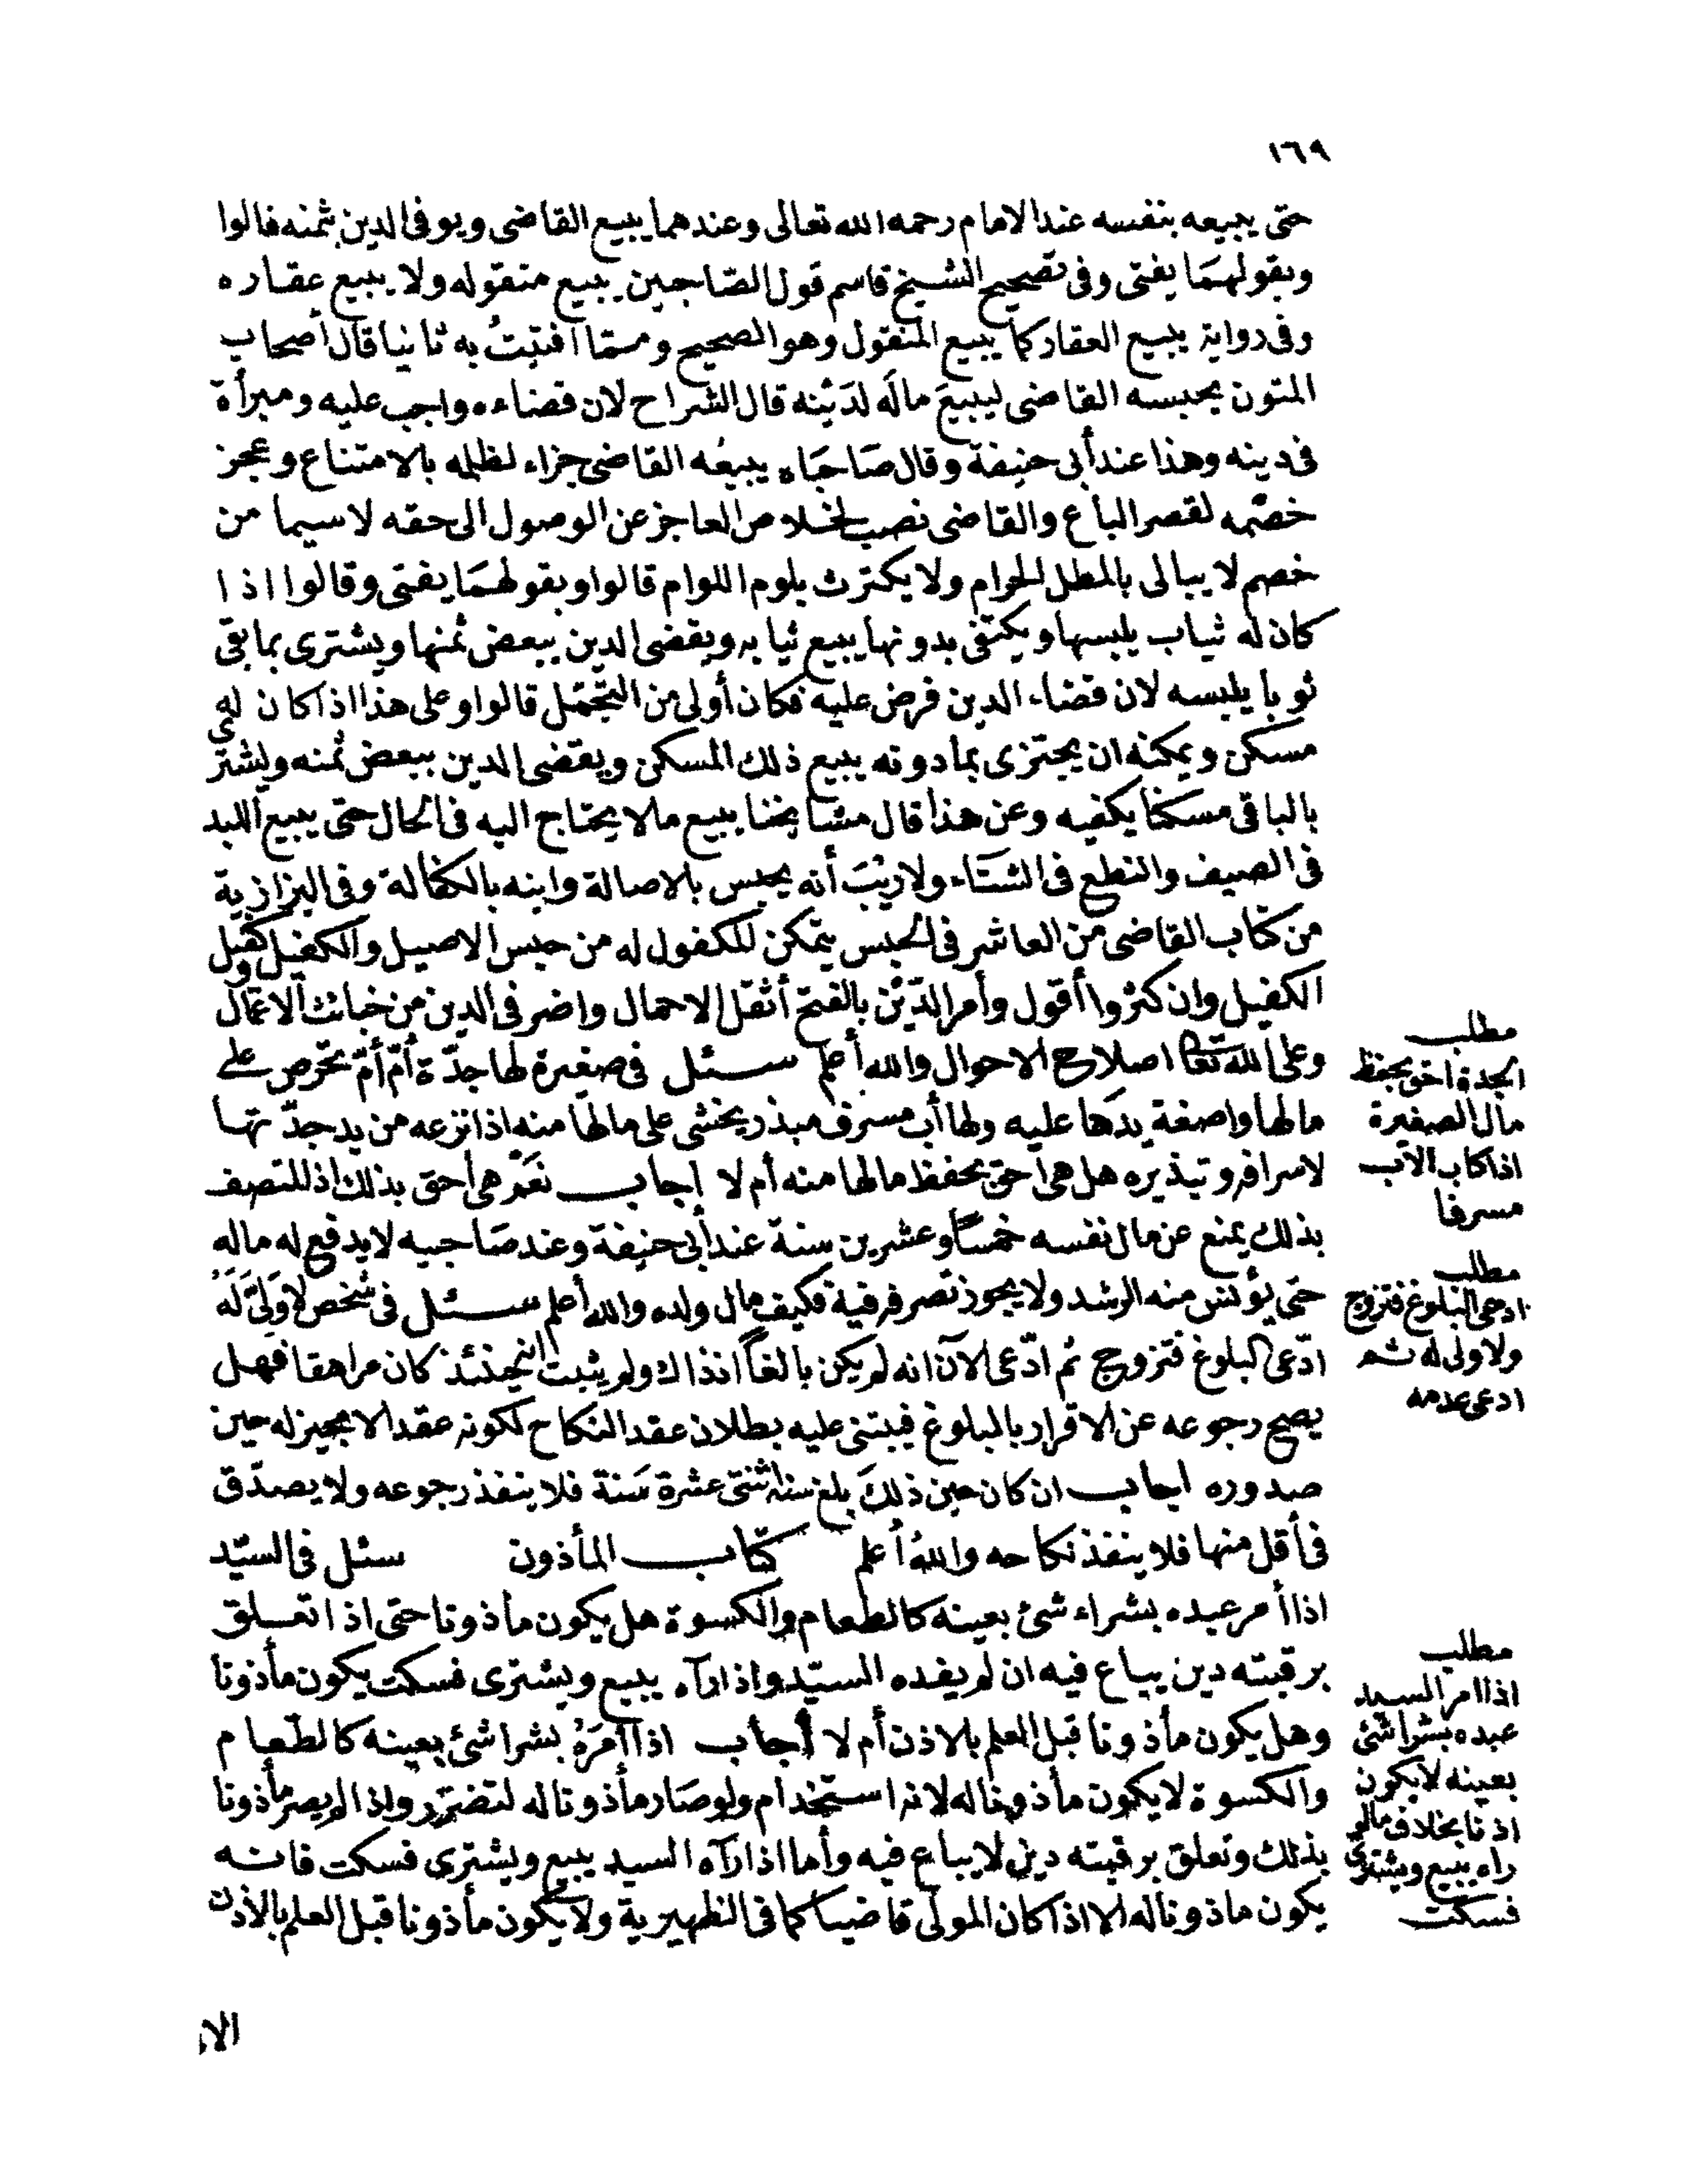 ١٦٩
حتى يبيعه بنفسه عند الامام رحمه الله تعالى وعندهما يبيع القاضى ويوفى الدين بثمنه قالوا
وبقولهمَا يفتى وفى تصحيح الشيخ قاسم قول الصّاحبين يبيع منقوله ولا يبيع عقاره
وفى رواية يبيع العقار كما يبيع المنقول وهو الصحيح ومتما افتيتُ به ثانيا قال أصحاب
المتون يحبسه القاضى ليبيعَ مالَه لدَيْنه قال الشراح لان قضاءه واجب عليه ومبرأة
فى دينه وهذا عند أبى حنيفة وقال صَاحبَاه يبيعُه القاضى جزاء لظلمه بالامتناع وعجز
خصْمه لقصر الباع والقاضى نصب لخلاص العاجز عن الوصول الى حقه لاسيما من
خصم لا يبالى بالمطل الحرام ولا يكترث بلوم اللوام قالوا وبقولهمَا يفتى وقالوا اذا
كان له ثياب يلبسها ويكتفى بدونها يبيع ثيابه ويقضى الدين ببعض ثمنها ويشترى بما بقى
ثوبا يلبسه لان قضاء الدين فرض عليه فكان أولى من التجمّل قالوا وعلى هذا اذا كان له
مسكن ويمكنه ان يجتزى بمادونه يبيع ذلك المسكن ويقضى الدين ببعض ثمنه ويشترى
بالباقى مسكنا يكفيه وعن هذا قال مشايخنا يبيع مالا يحتاج اليه فى الحال حتى يبيع اللبد
فى الصيف والنطع فى الشتاء ولا ريْبَ أنه يحبس بالاصالة وابنه بالكفالة وفى البزازية
من كتاب القاضى من العاشر فى الحبس يتمكن للكفول له من حبس الاصيل والكفيل وكفيل
الكفيل وان كثروا أقول وأمر الدّيْن بالفتح أثقل الاحمال واضر فى الدين من خبائث الاعمال
وعلى الله تعالى اصلاح الاحوال والله أعلم سئل فى صغيرة لها جدّة أمّ أمّ تحرص على
مالها واضعة يدَها عليه ولها أب مسرف مبذر يخشى على مالها منه اذا نزعه من يد جدّتها
لاسرافه وتبذيره هل هى احق بحفظ مالها منه أم لا اجاب نعَم هى أحق بذلك اذ المتصف
بذلك يمنع عن مال نفسه خمسًا وعشرين سنة عند أبى حنيفة وعند صَاحبيه لا يدفع له ماله
حتى يؤنس منه الرشد ولا يجوز تصرفه فيه فكيف مال ولده والله أعلم سئل فى شخص لاوَلِىَّ لَهُ
ادّعى البلوغ فتزوج ثم ادّعى الآن انه لم يكن بالغاً اذذاك ولم يثبت انه حينئذ كان مراهقا فهل
يصح رجوعه عن الاقرار بالبلوغ فيبتنى عليه بطلان عقد النكاح لكونه عقدا لا مجيز له حين
صدوره اجاب ان كان حين ذلكَ بلغ سنه اثنتى عشرة سَنة فلا ينفذ رجوعه ولا يصدّق
فى أقل منها فلا ينفذ نكاحه واللهُ أعلم كتاب المأذون سئل فى السيّد
اذا أمر عبده بشراء شئ بعينه كالطعام والكسوة هل يكون مأذونا حتى اذا تعلق
برقبته دين يباع فيه ان لم يفده السيّد واذا رآه يبيع ويشترى فسكت يكون مأذونا
وهل يكون مأذونا قبل العلم بالاذن أم لا أجاب اذا أمَرَهُ بشرا شئ بعينه كالطّعام
والكسوة لا يكون مأذونا له لانه استخدام ولو صَار مأذونا له لتضرّر واذا لم يصر مأذونا
بذلك وتعلق برقبته دين لا يباع فيه وأما اذا رآه السيد يبيع ويشترى فسكت فانه
يكون ماذونا له الا اذا كان المولى قاضيا كما فى الظهيرية ولا يكون مأذونا قبل العلم بالاذن
مطلب
الجدة احق بحفظ
مال الصغيرة
اذا كاب الاب
مسرفا
مطلب
ادعى البلوغ فتزوج
ولا ولى له ثم
ادعى عدمه
مطلب
اذا امر السيد
عبده بشرا شئ
بعينه لا يكون
اذنا بخلاف مالو
راه يبيع ويشترى
فسكت